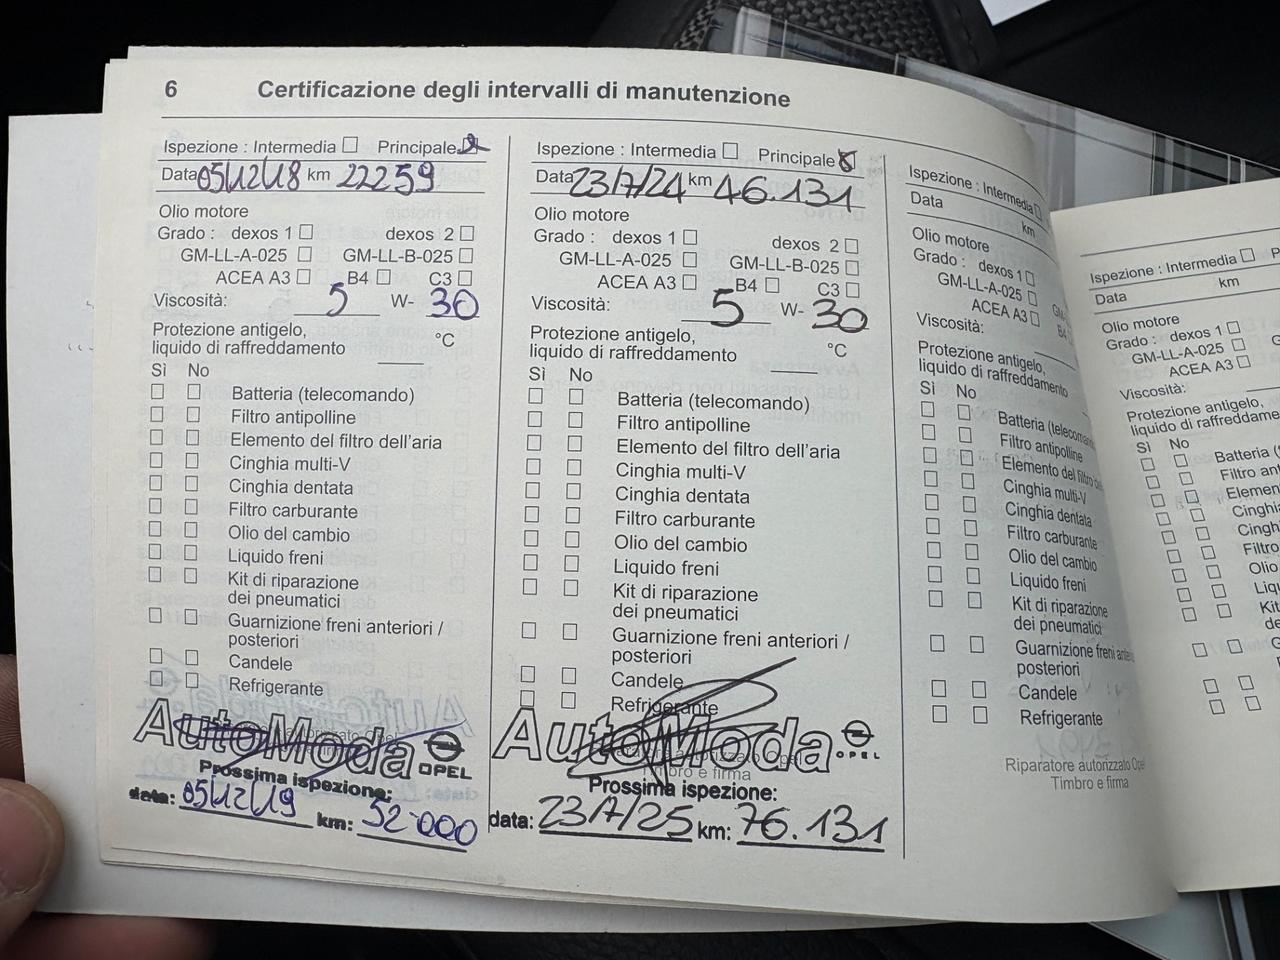 6 Certificazione degli intervalli di manutenzione
Ispezione : Intermedia Principale
Data 05/12/18 km 22259
Olio motore
Grado : dexos 1 dexos 2
GM-LL-A-025 GM-LL-B-025
ACEA A3 B4 C3
Viscosità: 5 W- 30
Protezione antigelo,
liquido di raffreddamento °C
Sì No
Batteria (telecomando)
Filtro antipolline
Elemento del filtro dell'aria
Cinghia multi-V
Cinghia dentata
Filtro carburante
Olio del cambio
Liquido freni
Kit di riparazione
dei pneumatici
Guarnizione freni anteriori /
posteriori
Candele
Refrigerante
AutoModa OPEL
Prossima ispezione:
data: 05/12/19 km: 52.000
Ispezione : Intermedia Principale
Data 23/7/24 km 46.131
Olio motore
Grado : dexos 1 dexos 2
GM-LL-A-025 GM-LL-B-025
ACEA A3 B4 C3
Viscosità: 5 W- 30
Protezione antigelo,
liquido di raffreddamento °C
Sì No
Batteria (telecomando)
Filtro antipolline
Elemento del filtro dell'aria
Cinghia multi-V
Cinghia dentata
Filtro carburante
Olio del cambio
Liquido freni
Kit di riparazione
dei pneumatici
Guarnizione freni anteriori /
posteriori
Candele
Refrigerante
AutoModa OPEL
Timbro e firma
Prossima ispezione:
data: 23/7/25 km: 76.131
Ispezione : Intermedia
Data km
Olio motore
Grado : dexos 1
GM-LL-A-025
ACEA A3 B4
Viscosità:
Protezione antigelo,
liquido di raffreddamento
Sì No
Batteria
Filtro antipolline
Elemento del filtro
Cinghia multi-V
Cinghia dentata
Filtro carburante
Olio del cambio
Liquido freni
Kit di riparazione
dei pneumatici
Guarnizione freni
posteriori
Candele
Refrigerante
Riparatore autorizzato Opel
Timbro e firma
Ispezione : Intermedia
Data km
Olio motore
Grado : dexos 1
GM-LL-A-025
ACEA A3
Viscosità:
Protezione antigelo,
liquido di
Sì No
Batteria
Filtro